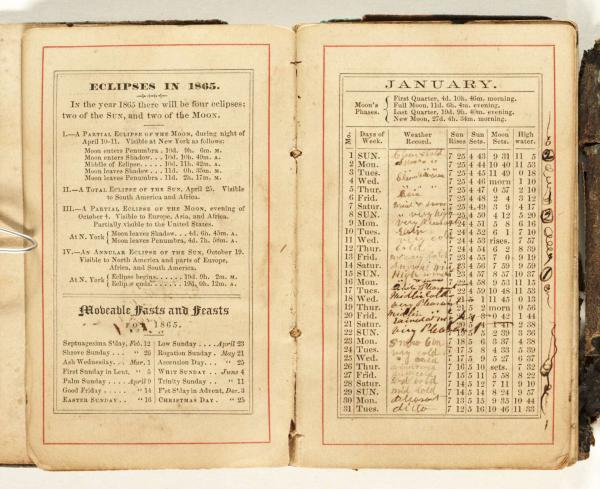 ECLIPSES IN 1865.
In the year 1865 there will be four eclipses;
two of the SUN, and two of the MOON.
I.—A PARTIAL ECLIPSE OF THE MOON, during night of
April 10-11. Visible at New York as follows:
Moon enters Penumbra . 10d. 9h. 6m. M.
Moon enters Shadow. . . 10d. 10h. 40m. A.
Middle of Eclipse. . . . 10d. 11h. 42m. A.
Moon leaves Shadow. . . 11d. 0h. 35m. M.
Moon leaves Penumbra . 11d. 2h. 17m. M.
II.—A TOTAL ECLIPSE OF THE SUN, April 25. Visible
to South America and Africa.
III.—A PARTIAL ECLIPSE OF THE MOON, evening of
October 4. Visible to Europe, Asia, and Africa.
Partially visible to the United States.
At N. York { Moon leaves Shadow. . . 4d. 6h. 45m. A.
Moon leaves Penumbra, 4d. 7h. 56m. A.
IV.—AN ANNULAR ECLIPSE OF THE SUN, October 19.
Visible to North America and parts of Europe,
Africa, and South America.
At N. York { Eclipse begins. . . . . . 19d. 9h. 2m. M.
Eclipse ends. . . . . . . 19d. 0h. 12m. A.
Moveable Fasts and Feasts
FOR 1865.
Septuagesima S'day, Feb. 12 Low Sunday . . April 23
Shrove Sunday . . " 26 Rogation Sunday . May 21
Ash Wednesday. . . Mar. 1 Ascension Day. . . " 25
First Sunday in Lent, " 5 WHIT SUNDAY . . June 4
Palm Sunday . . . April 9 Trinity Sunday . . " 11
Good Friday . . . . " 14 F'st S'day in Advent, Dec. 3
EASTER SUNDAY . . " 16 CHRISTMAS DAY . " 25
JANUARY.
Moon's Phases. { First Quarter, 4d. 10h. 46m. morning.
Full Moon, 11d. 6h. 4m. evening.
Last Quarter, 19d. 9h. 40m. evening.
New Moon, 27d. 4h. 34m. morning.
Mo. Days of Week. Weather Record. Sun Rises Sun Sets. Moon Sets. High water.
1 SUN. 7 25 4 43 9 31 11 5
2 Mon. 7 25 4 44 10 40 11 53
3 Tues. 7 25 4 45 11 49 0 18
4 Wed. 7 25 4 46 morn 1 10
5 Thur. 7 25 4 47 0 57 2 10
6 Frid. 7 25 4 48 2 4 3 12
7 Satur. 7 25 4 49 3 9 4 17
8 SUN. 7 25 4 50 4 12 5 20
9 Mon. 7 24 4 51 5 8 6 16
10 Tues. Rain 7 24 4 52 6 1 7 10
11 Wed. 7 24 4 53 rises. 7 57
12 Thur. cold 7 24 4 54 6 2 8 39
13 Frid. 7 23 4 55 7 0 9 19
14 Satur. 7 23 4 56 7 59 9 59
15 SUN. 7 23 4 57 8 57 10 37
16 Mon. 7 22 4 58 9 53 11 15
17 Tues. 7 22 4 59 10 48 11 53
18 Wed. 7 21 5 1 11 45 0 13
19 Thur. very Pleasant 7 21 5 2 morn 0 56
20 Frid. 0 42 1 44
21 Satur. very Pleasant 7 20 5 1 41 2 38
22 SUN. 5 2 39 3 36
23 Mon. Snow 7 18 5 6 3 37 4 38
24 Tues. very cold 7 17 5 8 4 43 5 39
25 Wed. 7 17 5 9 5 27 6 37
26 Thur. 7 16 5 10 sets. 7 32
27 Frid. 7 15 5 11 5 58 8 22
28 Satur. cold 7 14 5 12 7 11 9 10
29 SUN. cold 7 14 5 14 8 24 9 57
30 Mon. pleasant 7 13 5 15 9 35 10 44
31 Tues. ditto 7 12 5 16 10 46 11 33